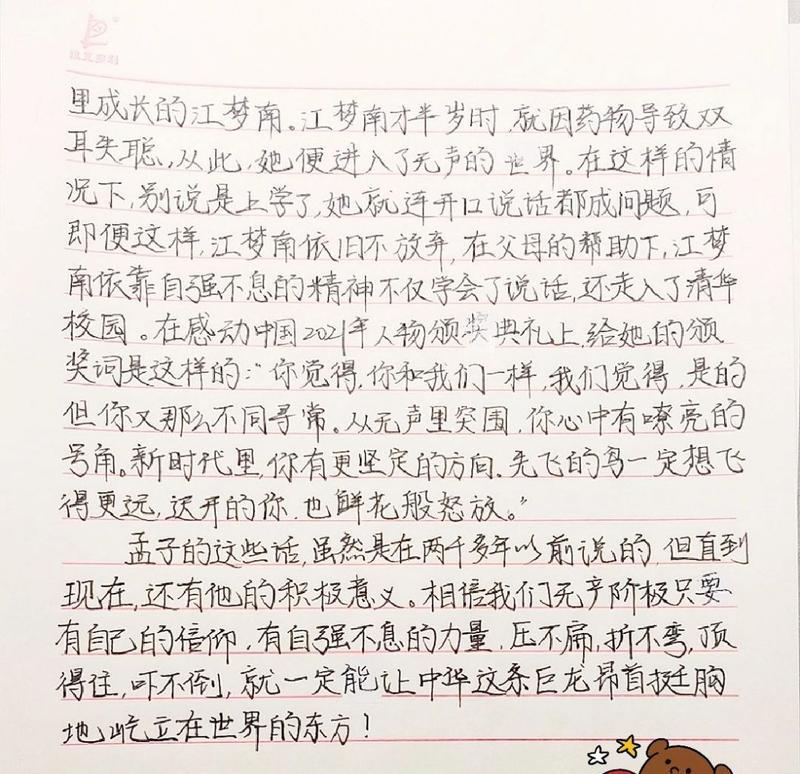 里成长的江梦南。江梦南才半岁时,就因药物导致双
耳失聪,从此,她便进入了无声的世界。在这样的情
况下,别说是上学了,她就连开口说话都成问题,可
即便这样,江梦南依旧不放弃,在父母的帮助下,江梦
南依靠自强不息的精神不仅学会了说话,还走入了清华
校园。在感动中国2021年人物颁奖典礼上,给她的颁
奖词是这样的:“你觉得,你和我们一样,我们觉得,是的
但你又那么不同寻常。从无声里突围,你心中有嘹亮的
号角。新时代里,你有更坚定的方向。先飞的鸟一定想飞
得更远,迟开的你,也鲜花般怒放。”
孟子的这些话,虽然是在两千多年以前说的,但直到
现在,还有他的积极意义。相信我们无产阶极只要
有自己的信仰,有自强不息的力量,压不扁,折不弯,顶
得住,吓不倒,就一定能让中华这条巨龙昂首挺胸
地屹立在世界的东方!